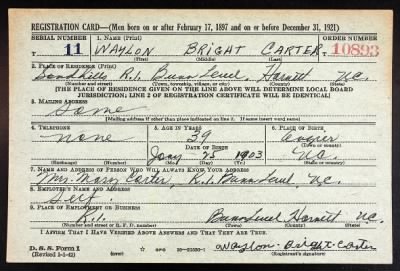 REGISTRATION CARD—(Men born on or after February 17, 1897 and on or before December 31, 1921)
SERIAL NUMBER 1. NAME (Print) ORDER NUMBER
T 11 WAYLON BRIGHT CARTER T 10893
(First) (Middle) (Last)
2. PLACE OF RESIDENCE (Print)
Sandhills R.1. Bunnlevel, Harnett N.C.
(Number and street) (Town, township, village, or city) (County) (State)
[THE PLACE OF RESIDENCE GIVEN ON THE LINE ABOVE WILL DETERMINE LOCAL BOARD
JURISDICTION; LINE 2 OF REGISTRATION CERTIFICATE WILL BE IDENTICAL]
3. MAILING ADDRESS
Same
[Mailing address if other than place indicated on line 2. If same insert word same]
4. TELEPHONE 5. AGE IN YEARS 6. PLACE OF BIRTH
none 39
DATE OF BIRTH (Town or county)
Jany 25 1903 N.C.
(Exchange) (Number) (Mo.) (Day) (Yr.) (State or country)
7. NAME AND ADDRESS OF PERSON WHO WILL ALWAYS KNOW YOUR ADDRESS
Mrs. Carter, R.1. Bunnlevel, N.C.
8. EMPLOYER'S NAME AND ADDRESS
Self.
9. PLACE OF EMPLOYMENT OR BUSINESS
R.1. Bunnlevel Harnett N.C.
(Number and street or R. F. D. number) (Town) (County) (State)
I AFFIRM THAT I HAVE VERIFIED ABOVE ANSWERS AND THAT THEY ARE TRUE.
D. S. S. Form 1
(Revised 1-1-42) (over) GPO Waylon Bright Carter
(Registrant's signature)